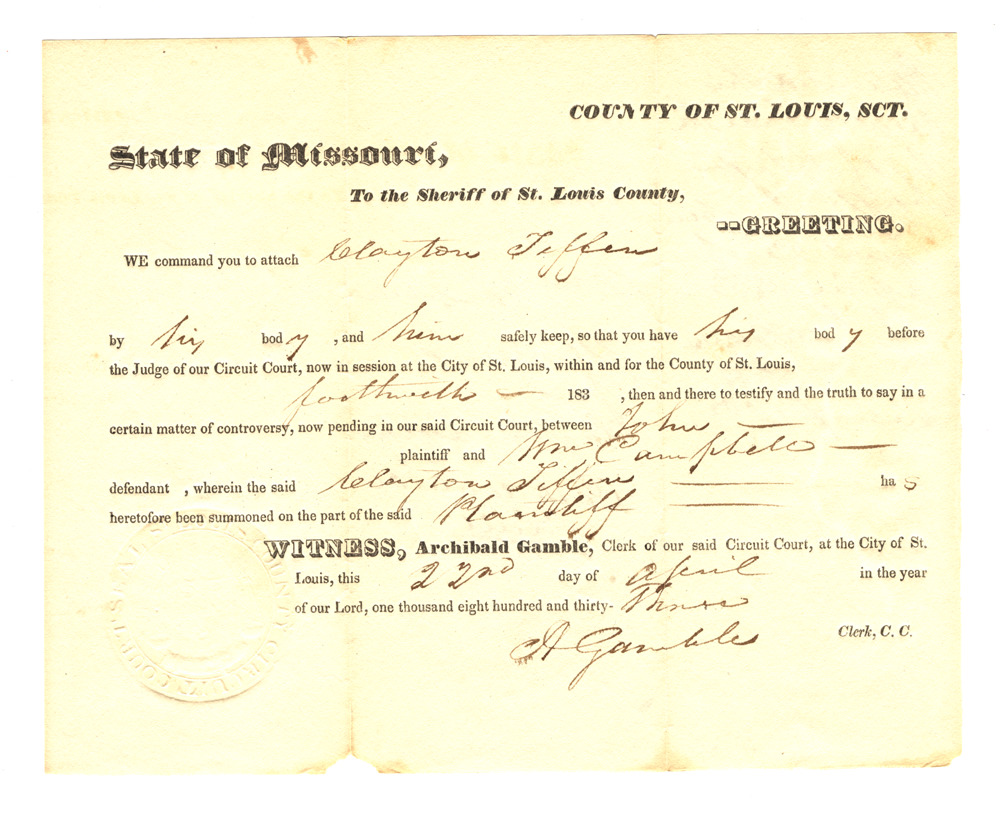 COUNTY OF ST. LOUIS, SCT.
State of Missouri,
To the Sheriff of St. Louis County,
--GREETING.
WE command you to attach Clayton Tiffin
by his body , and him safely keep, so that you have his body before
the Judge of our Circuit Court, now in session at the City of St. Louis, within and for the County of St. Louis,
forthwith — 183 , then and there to testify and the truth to say in a
certain matter of controversy, now pending in our said Circuit Court, between John —
plaintiff and Wm Campbell —
defendant , wherein the said Clayton Tiffin has
heretofore been summoned on the part of the said Plaintiff
WITNESS, Archibald Gamble, Clerk of our said Circuit Court, at the City of St.
Louis, this 22nd day of April in the year
of our Lord, one thousand eight hundred and thirty- three
A Gamble Clerk, C. C.